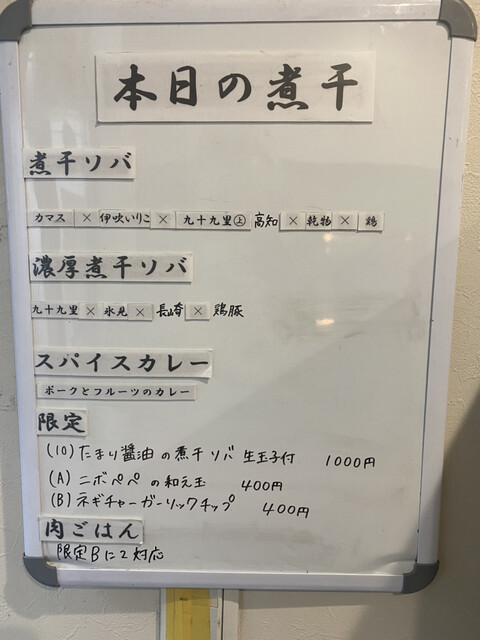 本日の煮干
煮干ソバ
カマス × 伊吹いりこ × 九十九里㊤ 高知 × 乾物 × 鶏
濃厚煮干ソバ
九十九里 × 氷見 × 長崎 × 鶏豚
スパイスカレー
ポークとフルーツのカレー
限定
(10) たまり醤油の煮干ソバ 生玉子付 1000円
(A) ニボペペの和え玉 400円
(B) ネギチャーガーリックチップ 400円
肉ごはん
限定Bにて対応